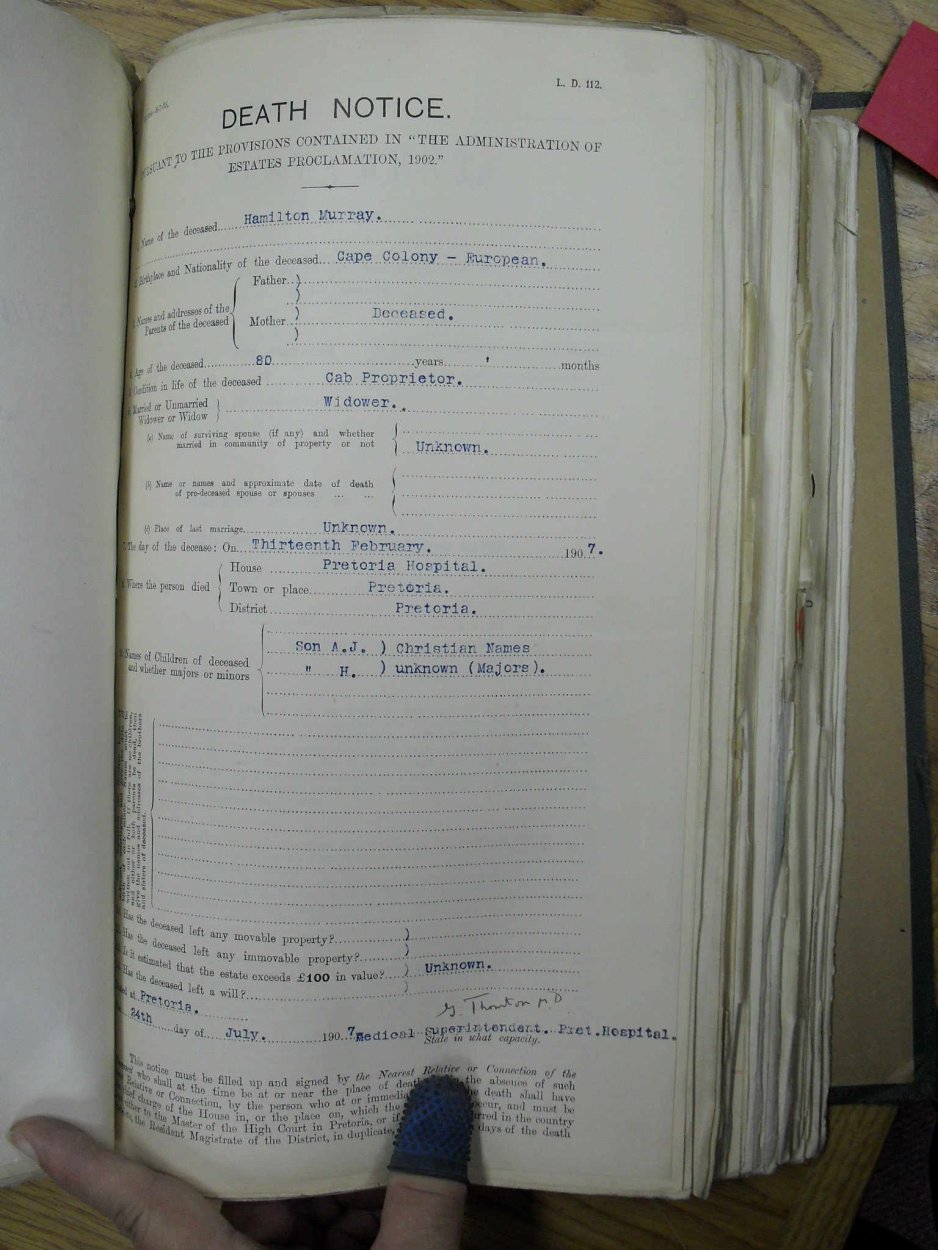 L. D. 112.
DEATH NOTICE.
PURSUANT TO THE PROVISIONS CONTAINED IN "THE ADMINISTRATION OF
ESTATES PROCLAMATION, 1902."
Name of the deceased Hamilton Murray.
Birthplace and Nationality of the deceased Cape Colony - European.
Names and addresses of the
Parents of the deceased
Father
Mother Deceased.
Age of the deceased 80 years ' months
Condition in life of the deceased Cab Proprietor.
Married or Unmarried
Widower or Widow
Widower.
(a) Name of surviving spouse (if any) and whether
married in community of property or not
Unknown.
(b) Name or names and approximate date of death
of pre-deceased spouse or spouses ... ...
(c) Place of last marriage Unknown.
The day of the decease: On Thirteenth February. 1907.
Where the person died
House Pretoria Hospital.
Town or place Pretoria.
District Pretoria.
Names of Children of deceased
and whether majors or minors
Son A.J. ) Christian Names
" H. ) unknown (Majors).
written out in full. If there are no children,
and either or both parents be dead, then
give the names and addresses of the brothers
and sisters of deceased.
Has the deceased left any movable property?
Has the deceased left any immovable property?
Is it estimated that the estate exceeds £100 in value? Unknown.
Has the deceased left a will?
at Pretoria.
24th day of July. 1907.
G. Thornton M.D
Medical Superintendent. Pret.Hospital.
State in what capacity.
This notice must be filled up and signed by the Nearest Relative or Connection of the
who shall at the time be at or near the place of death the absence of such
Relative or Connection, by the person who at or immedi death shall have
charge of the House in, or the place on, which the occur, and must be
either to the Master of the High Court in Pretoria, or if in the country
the Resident Magistrate of the District, in duplicate, days of the death